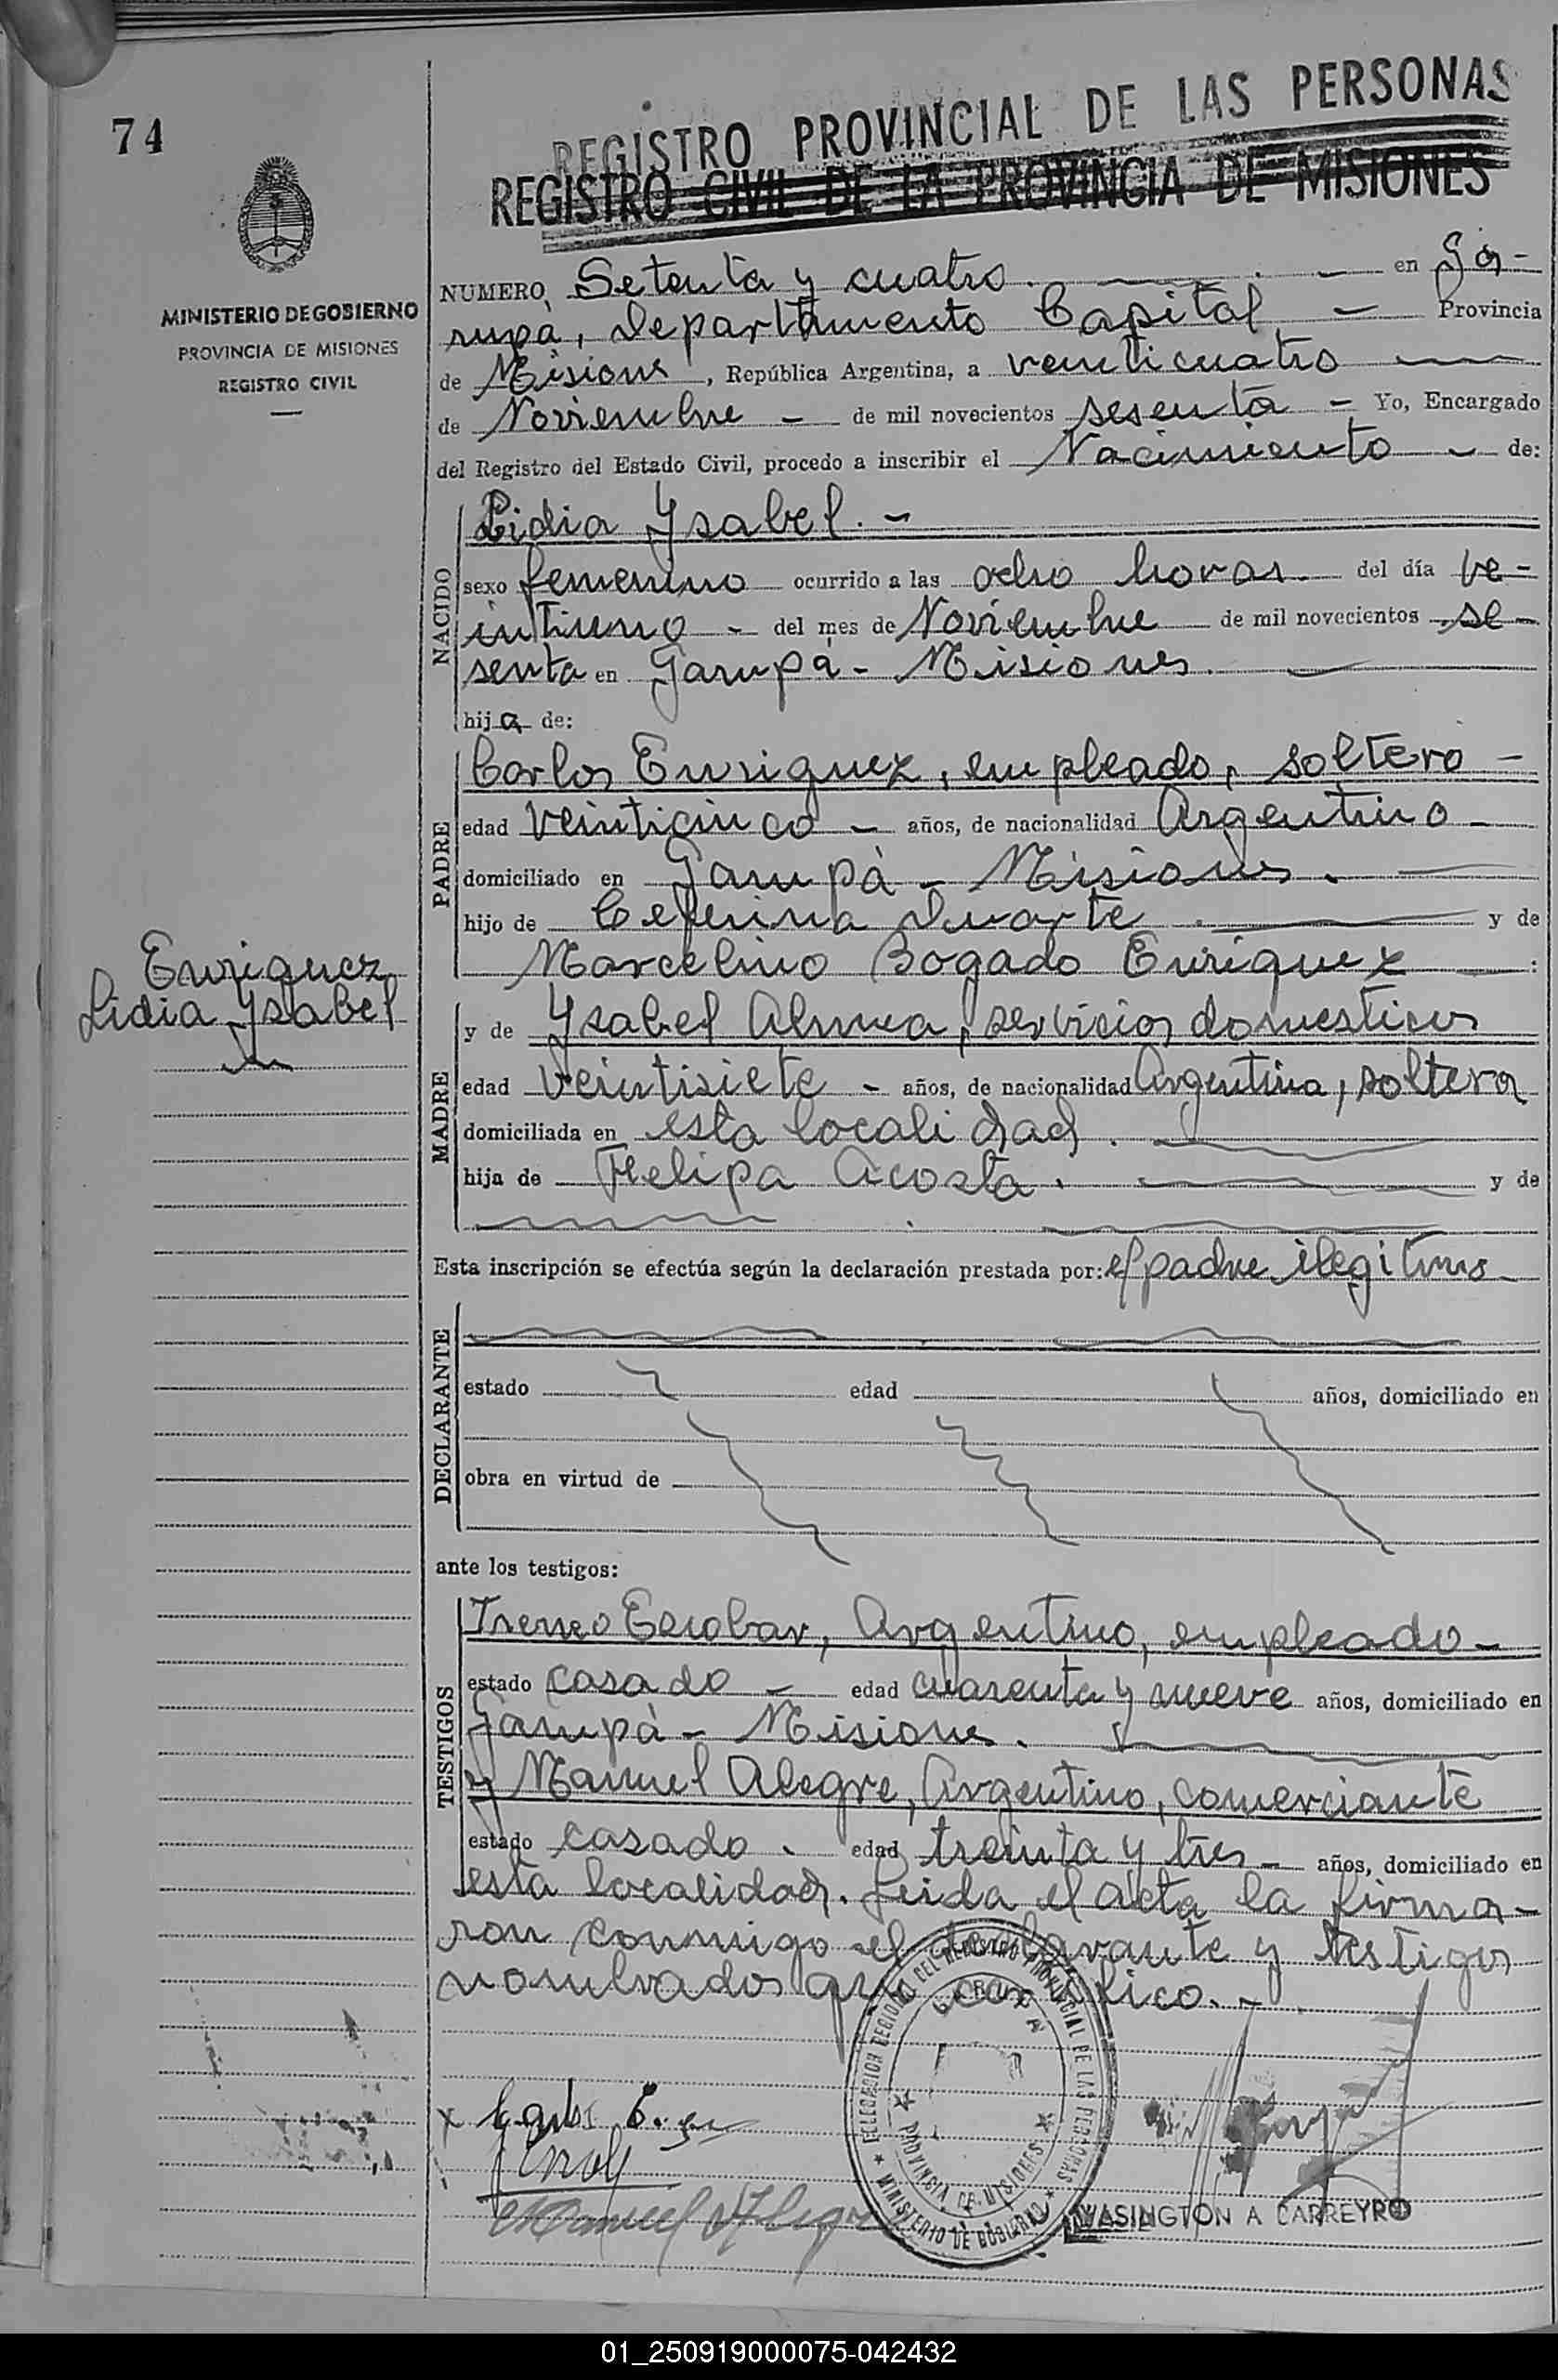 74
REGISTRO PROVINCIAL DE LAS PERSONAS
REGISTRO CIVIL DE LA PROVINCIA DE MISIONES
MINISTERIO DE GOBIERNO
PROVINCIA DE MISIONES
REGISTRO CIVIL
NUMERO Setenta y cuatro. — en Ga-
rupá, Departamento Capital — Provincia
de Misiones, República Argentina, a venticuatro
de Noviembre - de mil novecientos sesenta - Yo, Encargado
del Registro del Estado Civil, procedo a inscribir el Nacimiento - de:
NACIDO
Lidia Ysabel. -
sexo femenino ocurrido a las ocho horas. del día ve-
intiuno - del mes de Noviembre de mil novecientos se-
senta en Garupá - Misiones.
hija de:
PADRE
Carlos Enriquez, empleado, soltero -
edad veinticinco - años, de nacionalidad Argentino -
domiciliado en Garupá - Misiones.
hijo de Ceferina Duarte. y de
Marcelino Bogado Enriquez :
Enriquez
Lidia Ysabel
MADRE
y de Ysabel Almea, servicios domesticos
edad veintisiete - años, de nacionalidad Argentina, soltera
domiciliada en esta localidad.
hija de Felipa Acosta. y de
Esta inscripción se efectúa según la declaración prestada por: el padre ilegitimo
DECLARANTE
estado edad años, domiciliado en
obra en virtud de
ante los testigos:
TESTIGOS
Ireneo Escobar, Argentino, empleado -
estado casado - edad cuarenta y nueve años, domiciliado en
Garupá - Misiones.
y Manuel Alegre, Argentino, comerciante
estado casado. edad treinta y tres - años, domiciliado en
esta localidad. Leida el acta la firma-
ron conmigo el declarante y testigos
nombrados que certifico. -
DELEGACION REGIONAL DEL REGISTRO PROVINCIAL DE LAS PERSONAS
GARUPA
PROVINCIA DE MISIONES
MINISTERIO DE GOBIERNO
x Carlos E.
Manuel Alegre
WASINGTON A CARREYRO
01_250919000075-042432